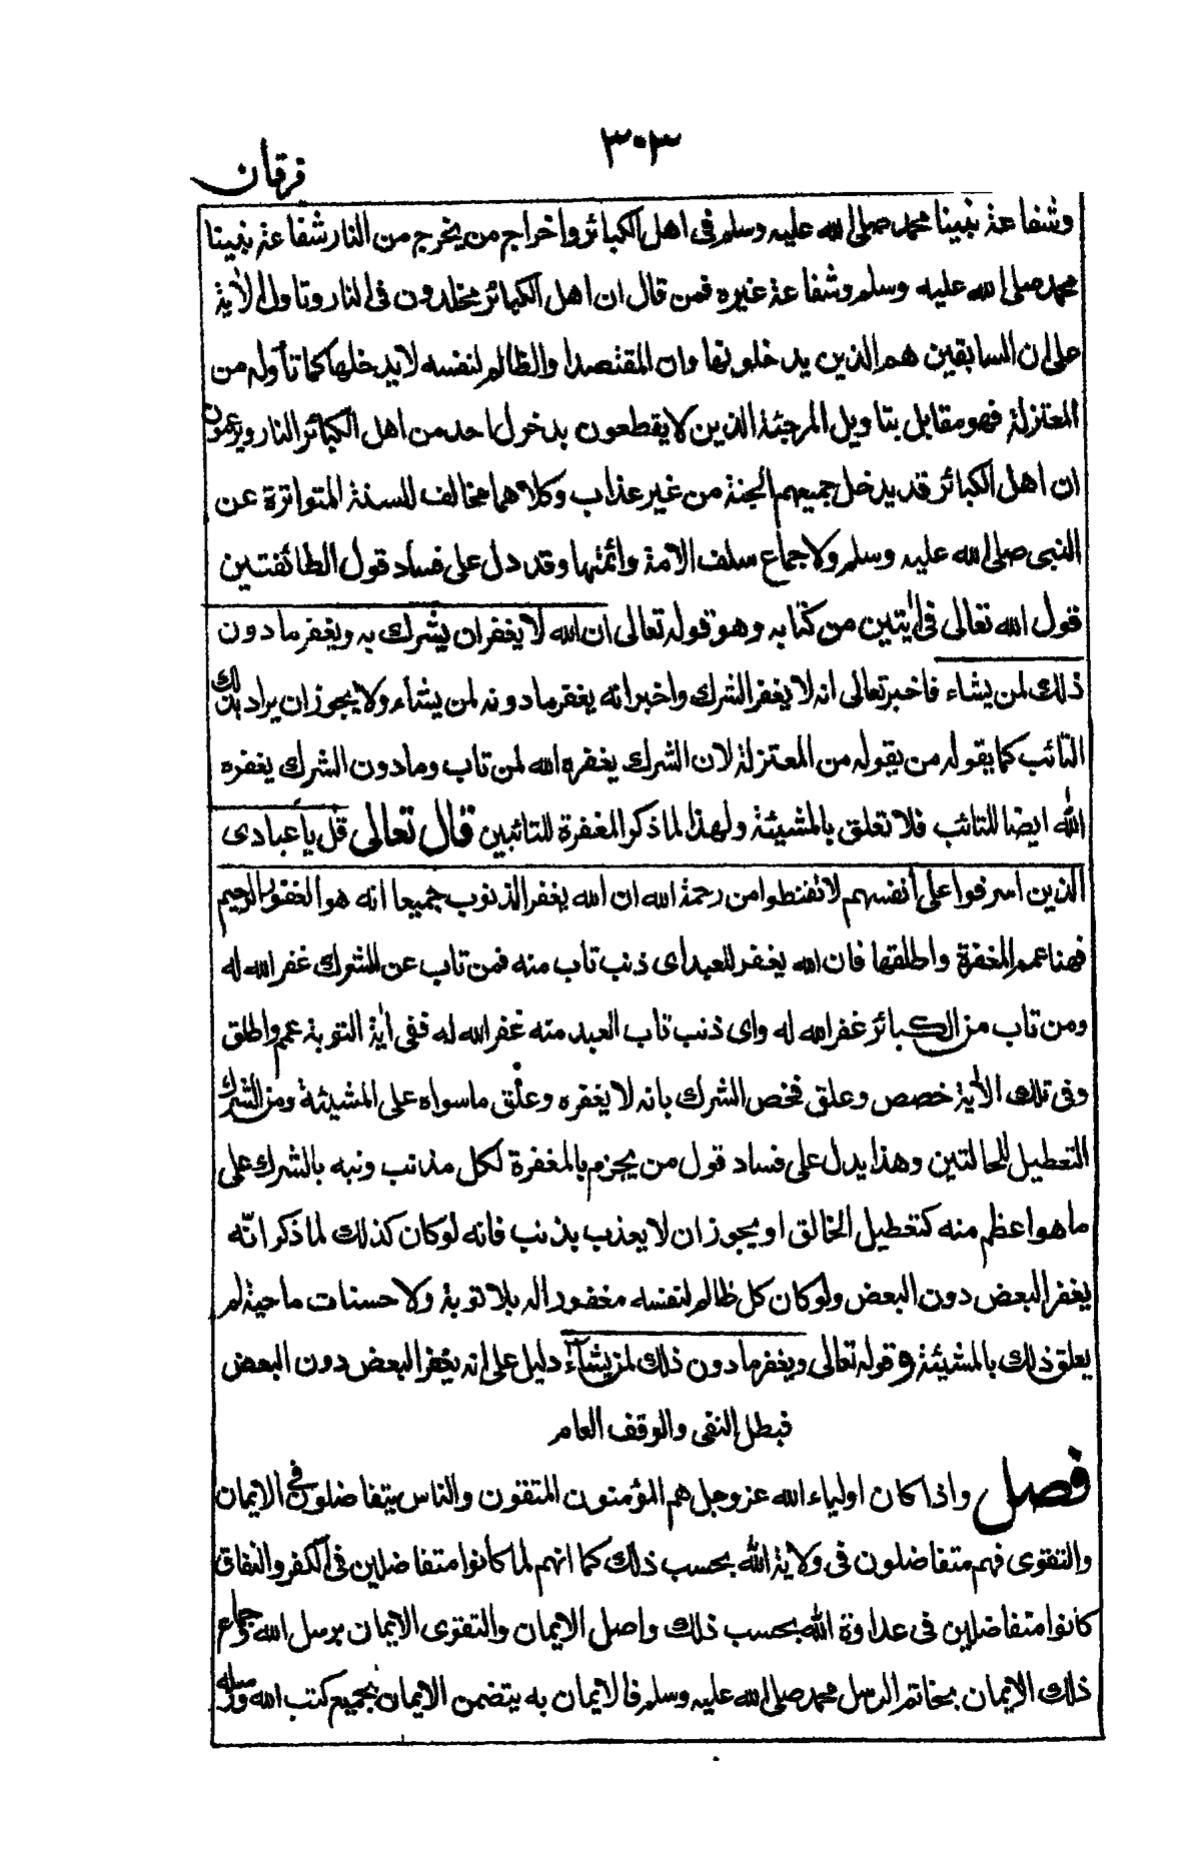 ٣٠٣
فرقان
وشفاعة نبينا محمد صلى الله عليه وسلم فى اهل الكبائر واخراج من يخرج من النار شفاعة نبينا
محمد صلى الله عليه وسلم وشفاعة غيره فمن قال ان اهل الكبائر مخلدون فى النار وتاول الاٰية
على ان السابقين هم الذين يدخلونها وان المقتصد او الظالم لنفسه لا يدخلها كما تأوله من
المعتزلة فهو مقابل بتاويل المرجئة الذين لا يقطعون بدخول احد من اهل الكبائر النار ويزعمون
ان اهل الكبائر قد يدخل جميعهم الجنة من غير عذاب وكلاهما مخالف للسنة المتواترة عن
النبى صلى الله عليه وسلم ولاجماع سلف الامة وائمتها وقد دل على فساد قول الطائفتين
قول الله تعالى فى اٰيتين من كتابه وهو قوله تعالى ان الله لا يغفر ان يشرك به ويغفر ما دون
ذلك لمن يشاء فاخبر تعالى انه لا يغفر الشرك واخبر انه يغفر ما دونه لمن يشاء ولا يجوز ان يراد بذلك
التائب كما يقوله من يقوله من المعتزلة لان الشرك يغفره الله لمن تاب وما دون الشرك يغفره
الله ايضا للتائب فلا تعلق بالمشيئة ولهذا لما ذكر المغفرة للتائبين قال تعالى قل يا عبادى
الذين اسرفوا على أنفسهم لا تقنطوا من رحمة الله ان الله يغفر الذنوب جميعا انه هو الغفور الرحيم
فهنا عمم المغفرة واطلقها فان الله يغفر للعبد اى ذنب تاب منه فمن تاب عن للشرك غفر الله له
ومن تاب من الكبائر غفر الله له واى ذنب تاب العبد منه غفر الله له ففى اٰية التوبة عمم واطلق
وفى تلك الاٰية خصص وعلق فخص الشرك بانه لا يغفره وعلق ما سواه على المشيئة ومن الشرك
التعطيل للخالق وهذا يدل على فساد قول من يجزم بالمغفرة لكل مذنب ونبه بالشرك على
ما هو اعظم منه كتعطيل الخالق او يجوز ان لا يعذب بذنب فانه لو كان كذلك لما ذكر انّه
يغفر البعض دون البعض ولو كان كل ظالم لنفسه مغفورا له بلا توبة ولا حسنات ماحية لم
يعلق ذلك بالمشيئة وقوله تعالى ويغفر ما دون ذلك لمن يشآء دليل على انه يغفر البعض دون البعض
فبطل النفى والوقف العام
فصل واذا كان اولياء الله عز وجل هم المؤمنون المتقون والناس يتفاضلون فى الايمان
والتقوى فهم متفاضلون فى ولاية الله بحسب ذلك كما انهم لما كانوا متفاضلين فى الكفر والنفاق
كانوا متفاضلين فى عداوة الله بحسب ذلك واصل الايمان والتقوى الايمان برسل الله وجماع
ذلك الايمان بخاتم الرسل محمد صلى الله عليه وسلم فالايمان به يتضمن الايمان بجميع كتب الله ورسله